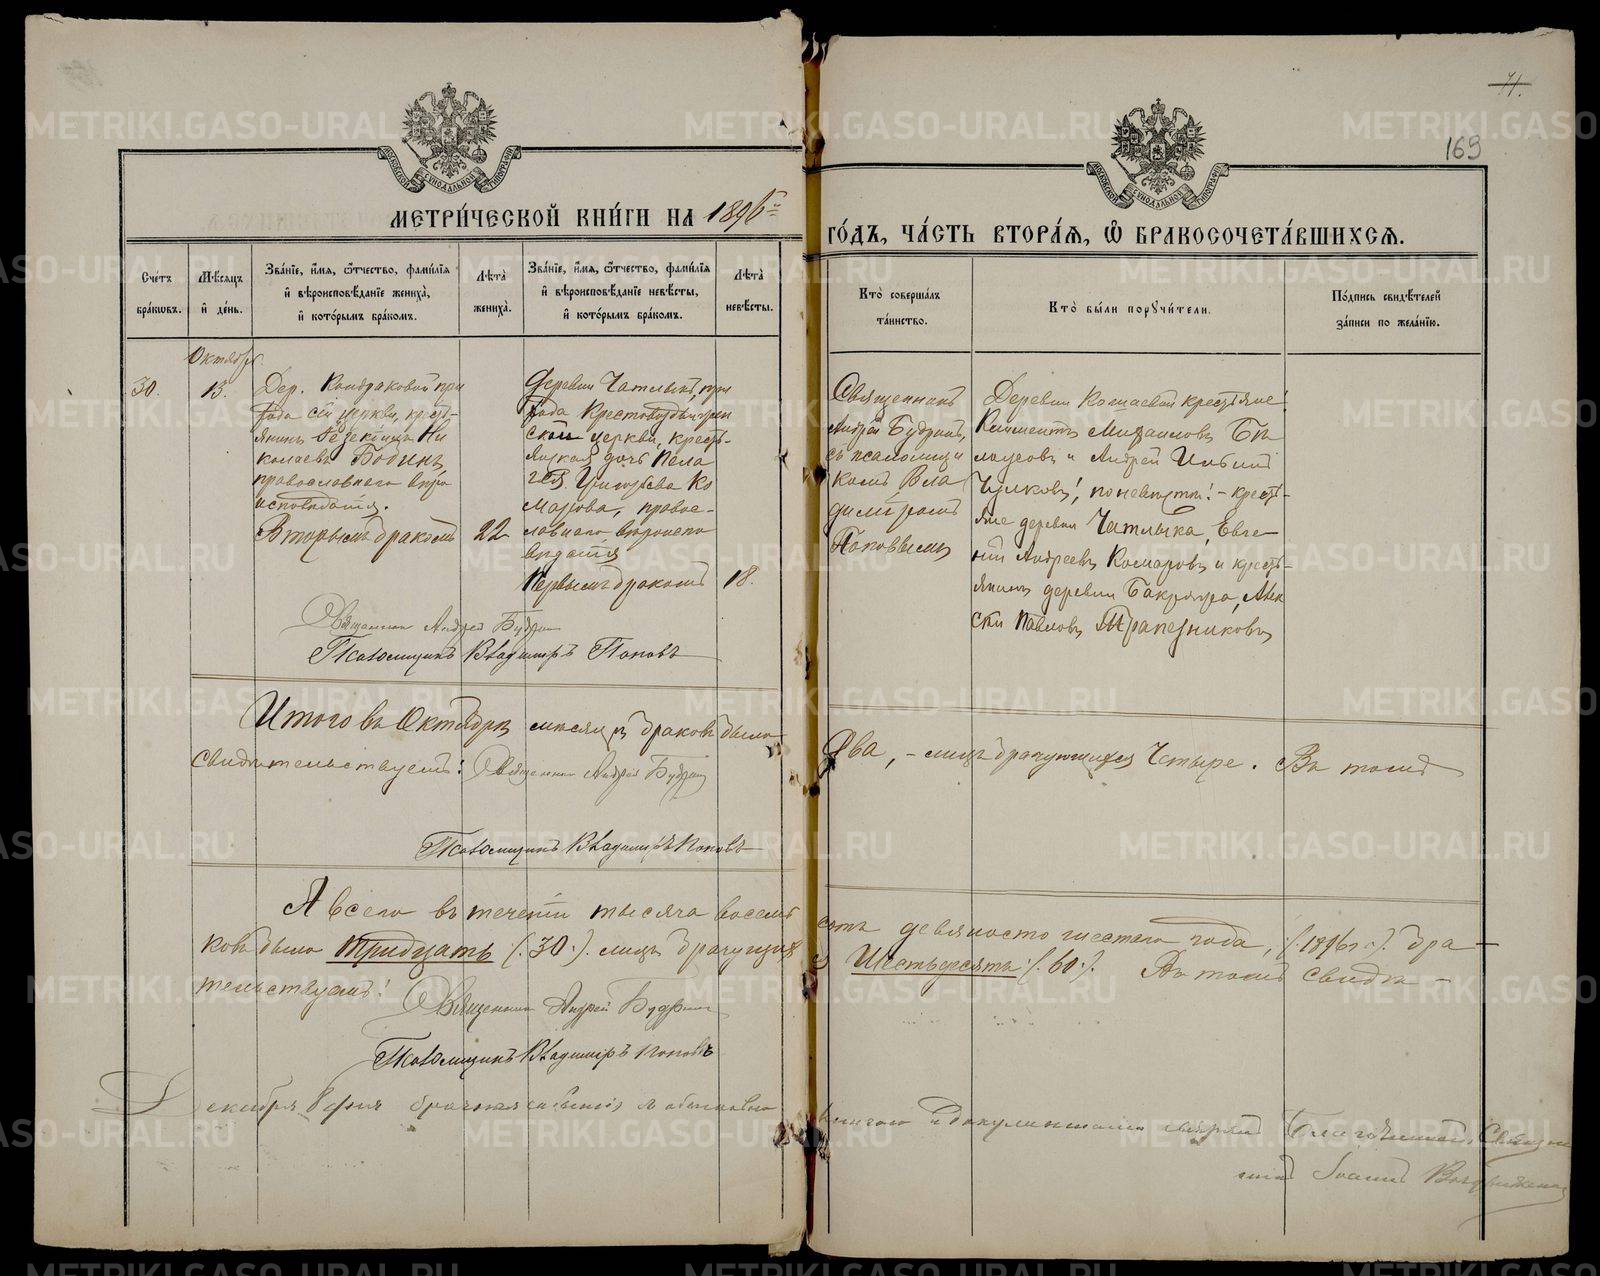 71.
169
МОСКОВСКОЙ СѴНОДАЛЬНОЙ ТИПОГРАФІИ
МОСКОВСКОЙ СѴНОДАЛЬНОЙ ТИПОГРАФІИ
МЕТРИ́ЧЕСКОЙ КНИ́ГИ НА 1896 го́дъ, ча́сть втора́ѧ, ѡ҆ бракосочета́вшихсѧ.
Сче́тъ бра́кѡвъ.
Мѣ́сѧцъ и҆ де́нь.
Зва́нїе, и҆́мѧ, ѻ҆́тчество, фами́лїѧ
и҆ вѣроисповѣ́данїе жениха̀,
и҆ кото́рымъ бра́комъ.
Лѣ́та жениха̀.
Зва́нїе, и҆́мѧ, ѻ҆́тчество, фами́лїѧ
и҆ вѣроисповѣ́данїе невѣ́сты,
и҆ кото́рымъ бра́комъ.
Лѣ́та невѣ́сты.
Кто̀ соверша́лъ та́инство.
Кто̀ бы́ли порꙋчи́тели.
По́дпись свидѣ́телей за́писи по жела́нїю.
Октября
30.
13.
Дер. Кондраковой при
хода сей церкви, кресть-
янинъ Іезекіиль Ни
колаевъ Бодинъ,
православнаго вѣро
исповѣданія.
Вторымъ бракомъ
22
Деревни Чатлыкъ, при
хода Крестовоздвижен
ской церкви, кресть-
янская дочь Пела
гея Григорьева Ко
марова, право-
славнаго вѣроиспо
вѣданія
Первымъ бракомъ
18.
Священникъ
Андрей Будринъ,
съ псаломщи
комъ Вла
диміромъ
Поповымъ
Деревни Кошаевой крестьяне:
Климентъ Михаиловъ Бѣ
лоусовъ и Андрей Ильинъ
Чулковъ; по невѣстѣ: - кресть-
яне деревни Чатлыка, Евге-
ній Андреевъ Комаровъ и кресть-
янинъ деревни Бакряра, Алек
сѣй Павловъ Трапезниковъ
Священникъ Андрей Будринъ
Псаломщикъ Владимиръ Поповъ
Итого въ Октябрѣ мѣсяцѣ браковъ было Два, - лицъ брачующихся Четыре. Въ томъ
свидѣтельствуемъ: Священникъ Андрей Будринъ
Псаломщикъ Владимиръ Поповъ
А всего въ теченіи тысяча восемь сотъ девяносто шестаго года, (1896 г.). бра-
ковъ было Тридцать (30.). лицъ брачущихся Шестьдесятъ (60.). Въ томъ свидѣ-
тельствуемъ: Священникъ Андрей Будринъ
Псаломщикъ Владимиръ Поповъ
Декабря 8 дня
книгою и документами свѣрялъ Благочинный, Священ
никъ Іоаннъ
METRIKI.GASO-URAL.RU